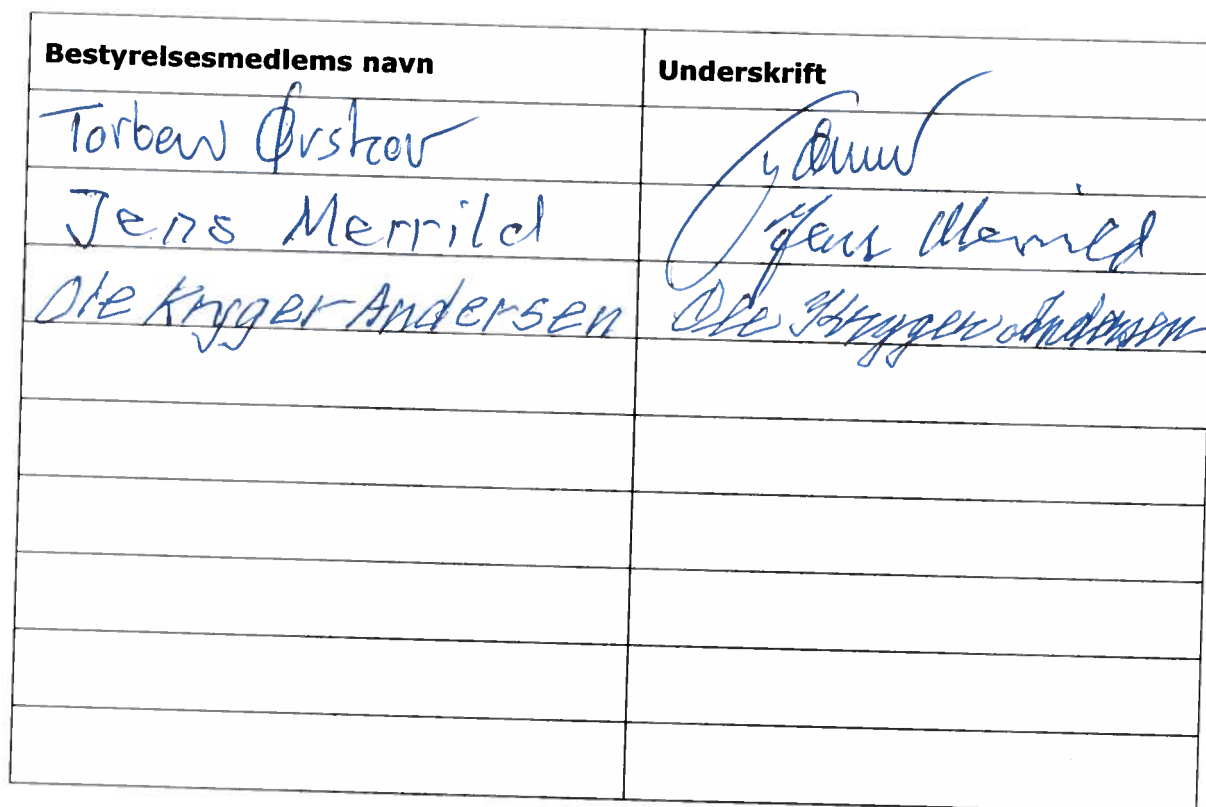 Bestyrelsesmedlems navn Underskrift
Torben Ørskov
Jens Merrild Jens Merrild
Ole Krygger Andersen Ole Krygger Andersen